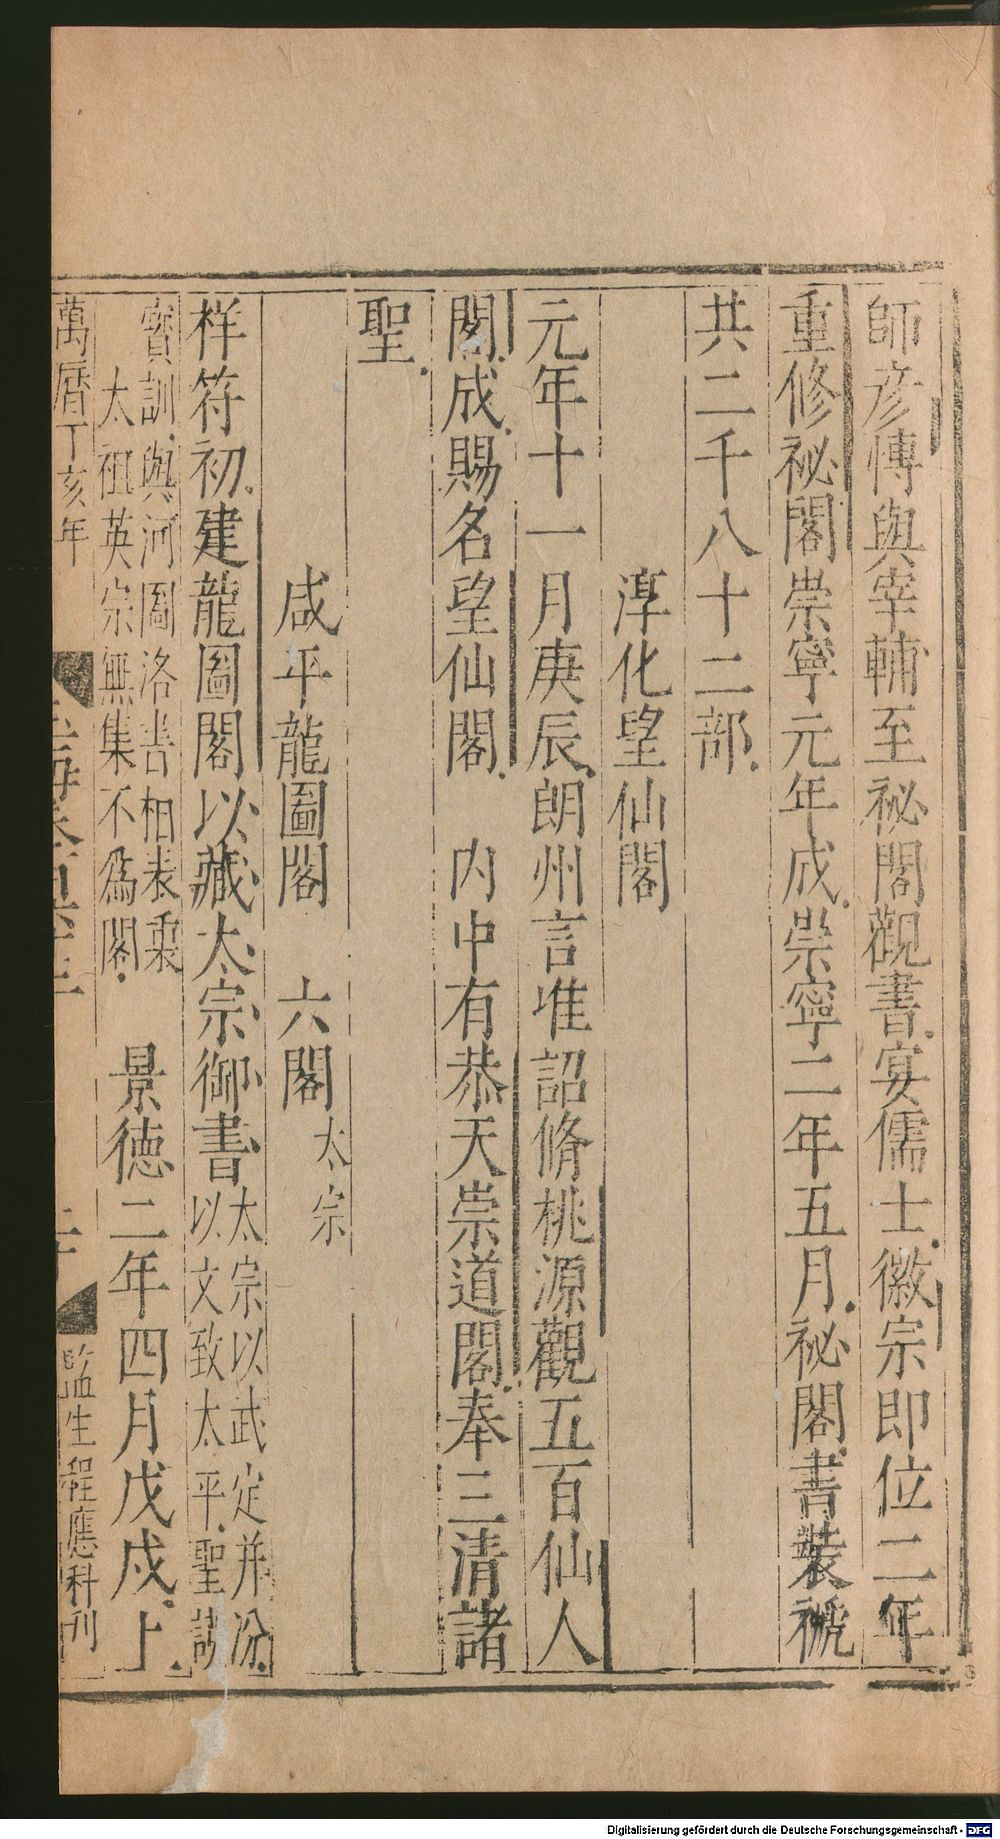 師彦慱與宰輔至祕閣觀書宴儒士徽宗即位二年
重修祕閣崇寧元年成崇寧二年五月祕閣書裝褫
共二千八十二部
淳化望仙閣
元年十一月庚辰朗州言准詔脩桃源觀五百仙人
閣成賜名望仙閣　内中有恭天崇道閣奉三清諸
聖
咸平龍圖閣　六閣太宗
祥符初建龍圖閣以藏太宗御書太宗以武定并汾
以文致太平聖謨
寳訓與河圖洛書相表裏
太祖英宗無集不爲閣　景德二年四月戊戌上
萬曆丁亥年
監生程應科刊
Digitalisierung gefördert durch die Deutsche Forschungsgemeinschaft - DFG